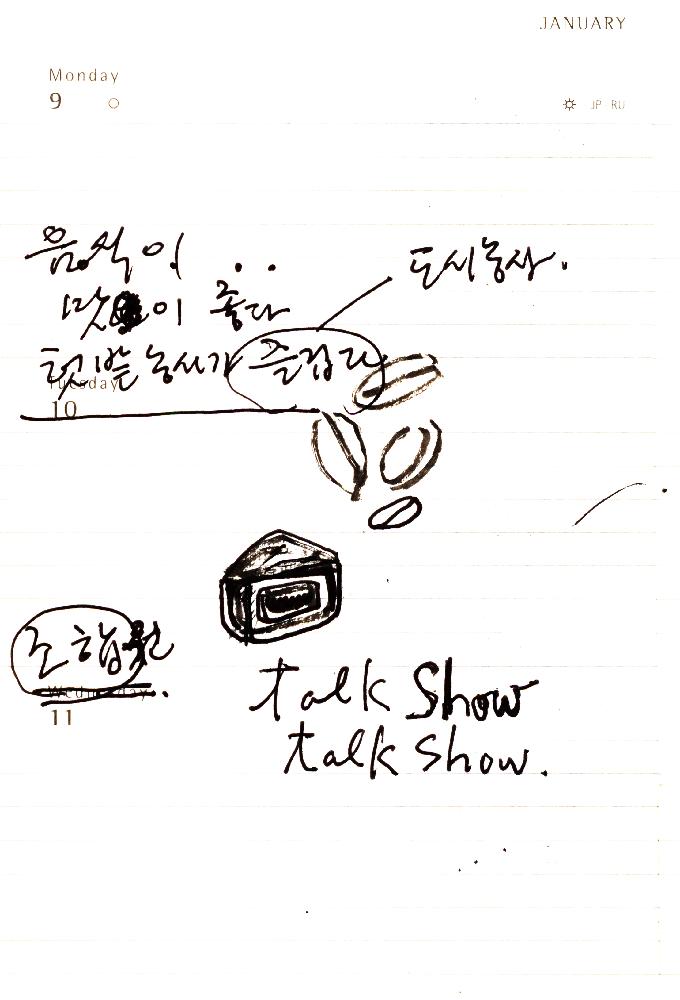 JANUARY
Monday
9
JP RU
음식이 ..
도시농사.
맛이 좋다
텃밭농사가 즐겁다
Tuesday
10
조합원
Wednesday
11
talk Show
talk show.